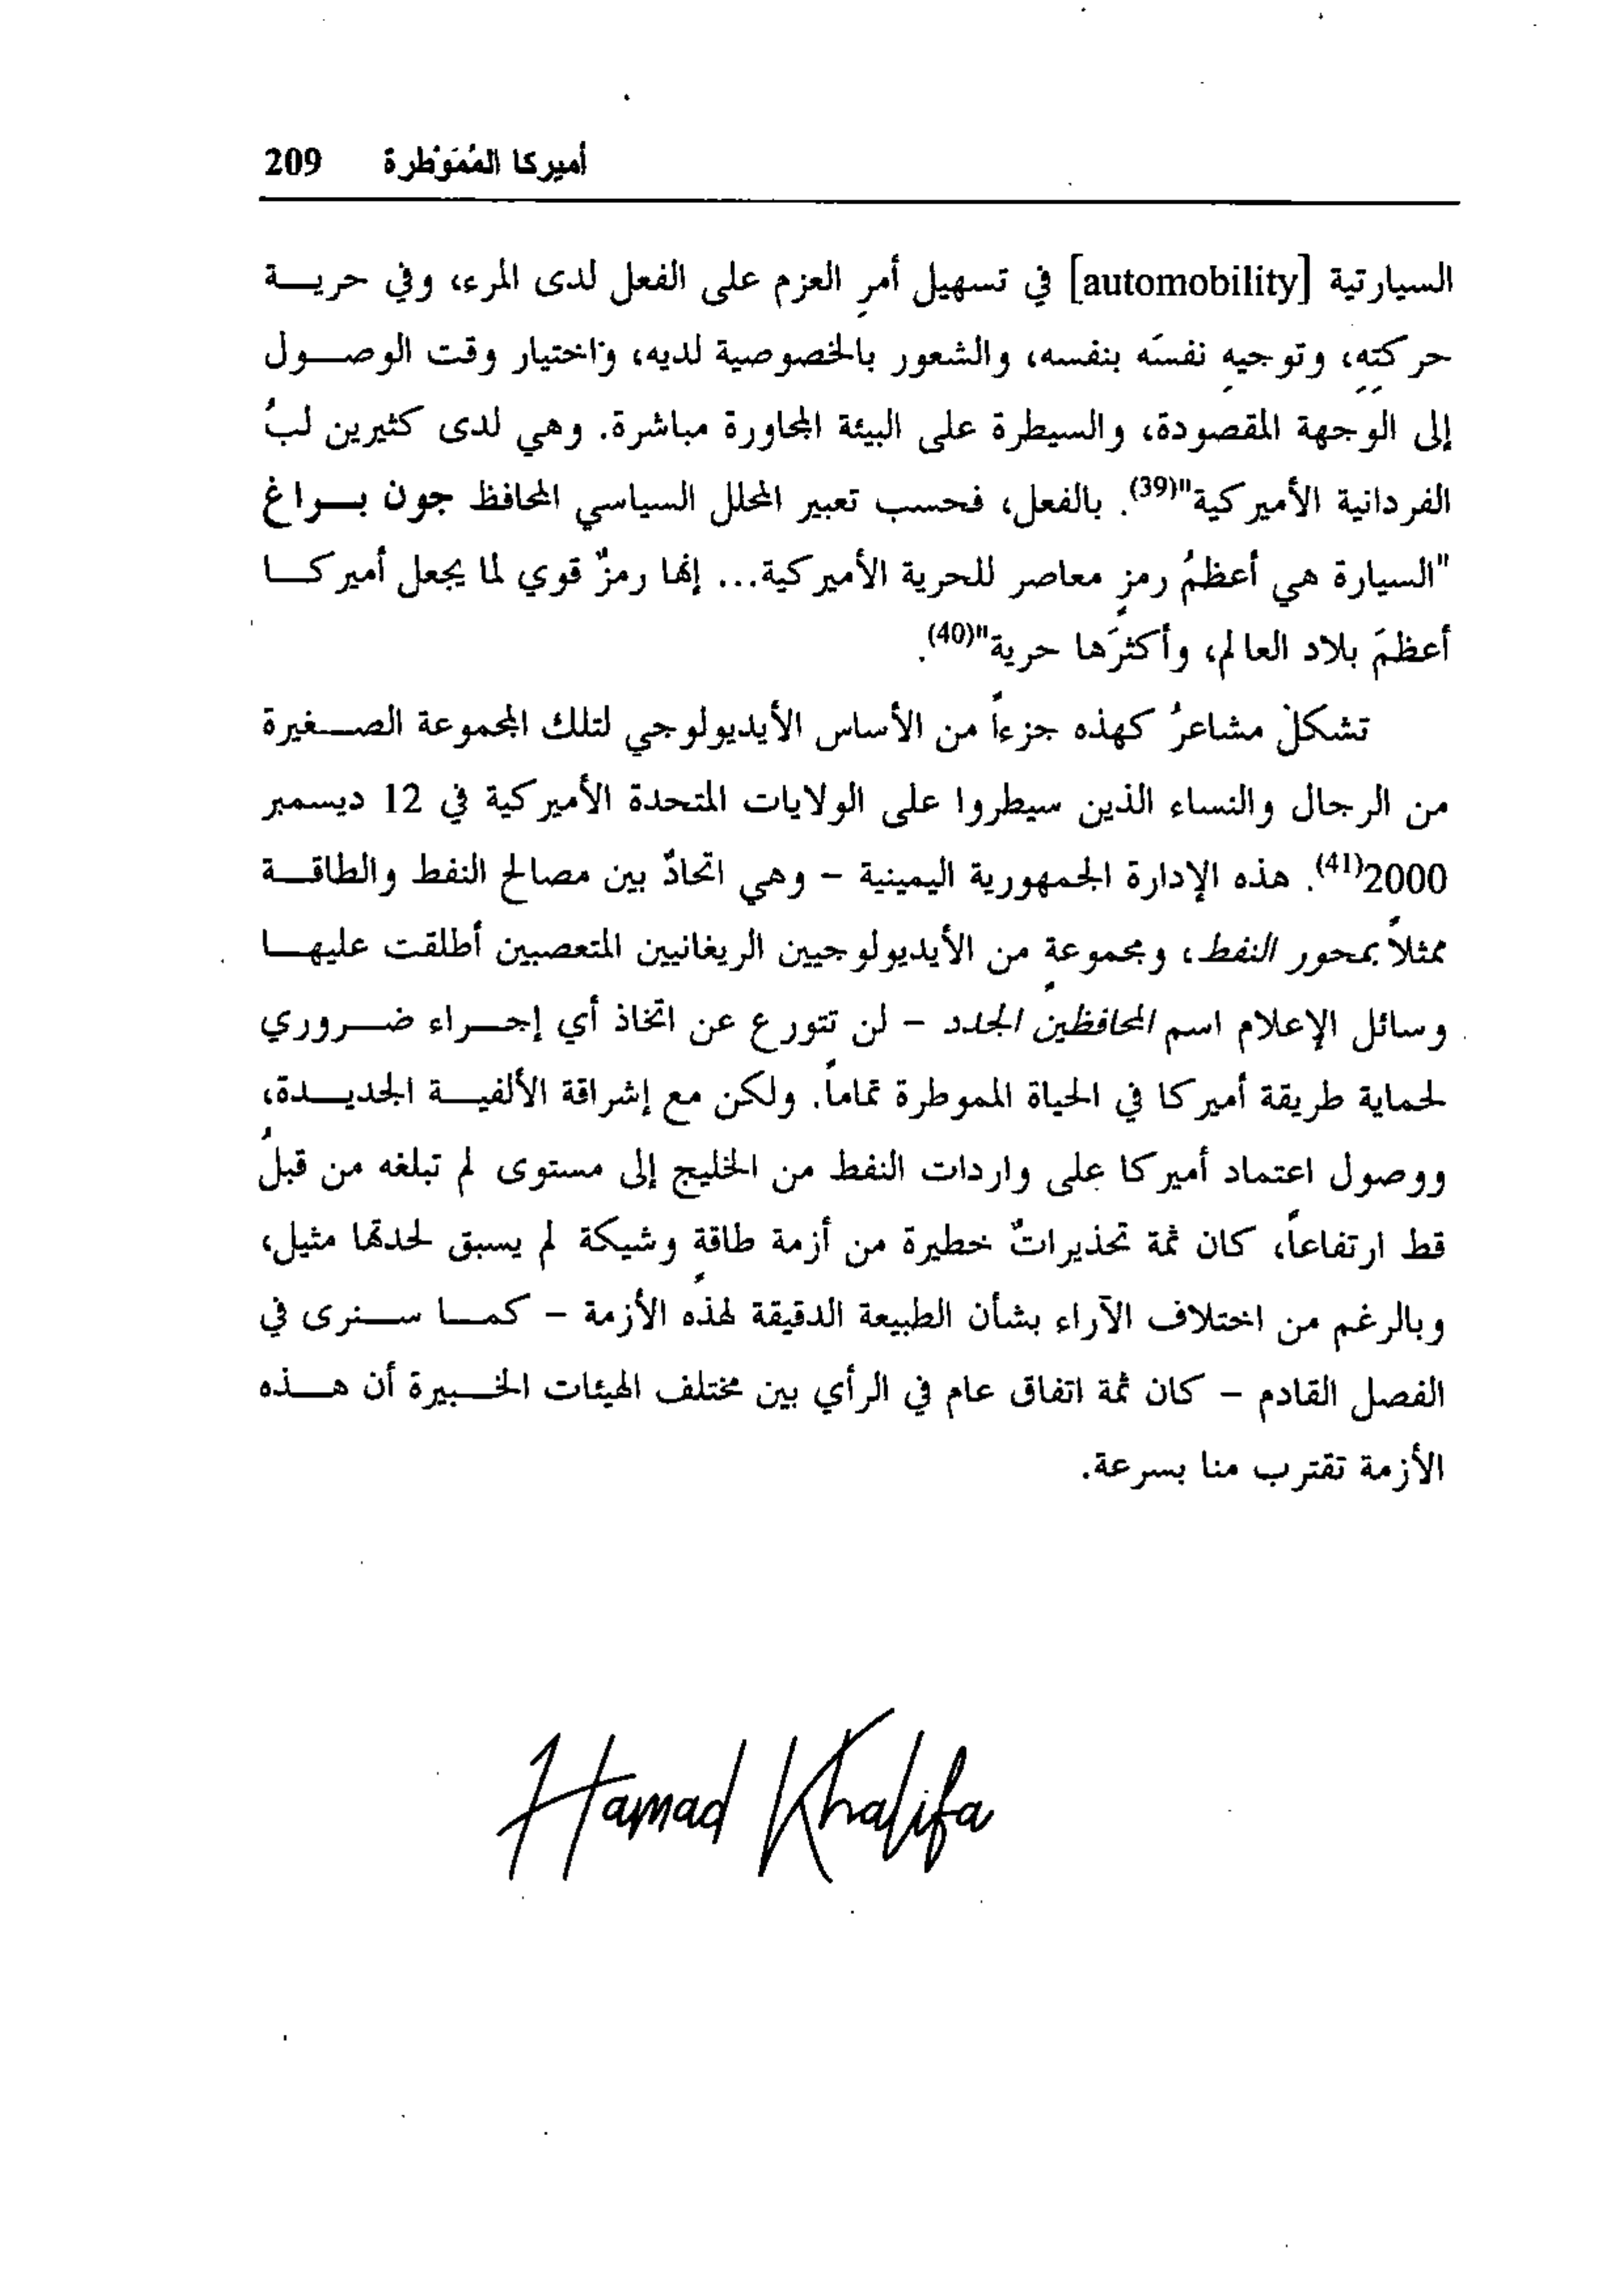 أميركا المُمَوْطرة 209
السيارتية [automobility] في تسهيل أمرِ العزم على الفعل لدى المرء، وفي حريـــة
حركتِهِ، وتوجيهِ نفسَه بنفسه، والشعور بالخصوصية لديه، واختيار وقت الوصـــول
إلى الوجهة المقصودة، والسيطرة على البيئة المجاورة مباشرة. وهي لدى كثيرين لبُّ
الفردانية الأميركية"(39). بالفعل، فحسب تعبير المحلل السياسي المحافظ جون بـــراغ
"السيارة هي أعظمُ رمزٍ معاصر للحرية الأميركية... إنها رمزٌ قوي لما يجعل أميركـــا
أعظمَ بلاد العالم، وأكثرَها حرية"(40).
تشكلْ مشاعرُ كهذه جزءاً من الأساس الأيديولوجي لتلك المجموعة الصـــغيرة
من الرجال والنساء الذين سيطروا على الولايات المتحدة الأميركية في 12 ديسمبر
2000(41). هذه الإدارة الجمهورية اليمينية – وهي اتحادٌ بين مصالح النفط والطاقـــة
ممثلاً بمحور النفط، ومجموعةٍ من الأيديولوجيين الريغانيين المتعصبين أطلقت عليهـــا
وسائل الإعلام اسم المحافظين الجدد – لن تتورع عن اتخاذ أي إجـــراء ضـــروري
لحماية طريقة أميركا في الحياة المموطرة تماماً. ولكن مع إشراقة الألفيـــة الجديـــدة،
ووصول اعتماد أميركا على واردات النفط من الخليج إلى مستوى لم تبلغه من قبلُ
قط ارتفاعاً، كان ثمة تحذيراتٌ خطيرة من أزمة طاقةٍ وشيكة لم يسبق لحدتها مثيل،
وبالرغم من اختلاف الآراء بشأن الطبيعة الدقيقة لهذه الأزمة – كمـــا ســـنرى في
الفصل القادم – كان ثمة اتفاق عام في الرأي بين مختلف الهيئات الخـــبيرة أن هـــذه
الأزمة تقترب منا بسرعة.
Hamad Khalifa